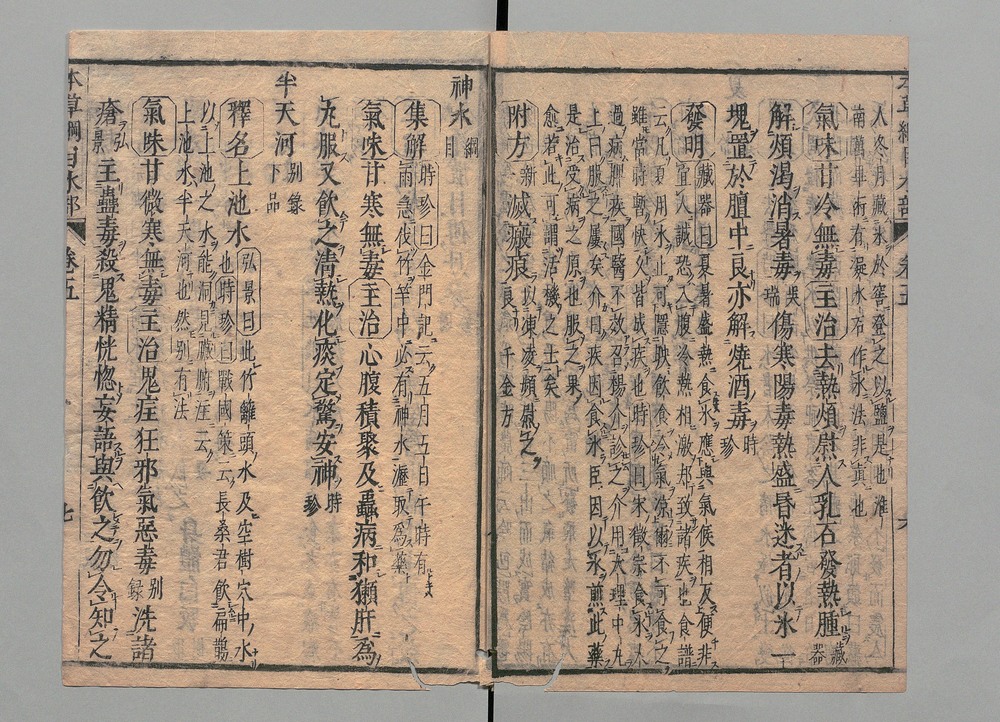 人冬月藏氷於窖登之以鹽是也淮
南萬畢術有凝水石作氷法非真也
氣味甘冷無毒主治去熱煩熨人乳石發熱腫藏器
解煩渴消暑毒吳瑞傷寒陽毒熱盛昏迷者以氷一
塊置於膻中良亦解燒酒毒時珍
發明藏器曰夏暑盛熱食氷應與氣候相反便非
宜人誠恐入腹冷熱相激却致諸疾也食譜
云凡夏用氷止可隱映飲食令氣凉爾不可食之
雖當時暫快久皆成疾也時珍曰宋徽宗食氷太
過病脾疾國醫不效召楊介診之介用大理中丸
上曰服之屢矣介曰疾因食氷臣因以氷煎此藥
是治受病之原也服之果
愈若此可謂活機之士矣
附方新滅瘢痕以凍凌頻熨之
良千金方
神水綱目
集解時珍曰金門記云五月五日午時有
雨急伐竹竿中必有神水瀝取為藥
氣味甘寒無毒主治心腹積聚及蟲病和獺肝為
丸服又飲之清熱化痰定驚安神時珍
半天河别錄下品
釋名上池水弘景曰此竹籬頭水及空樹穴中水
也時珍曰戰國策云長桑君飲扁鵲
以上池之水能洞見臟腑注云
上池水半天河也然别有法
氣味甘微寒無毒主治鬼疰狂邪氣惡毒别錄洗諸
瘡弘景主蠱毒殺鬼精恍惚妄語與飲之勿令知之
本草綱目水部 卷五 七